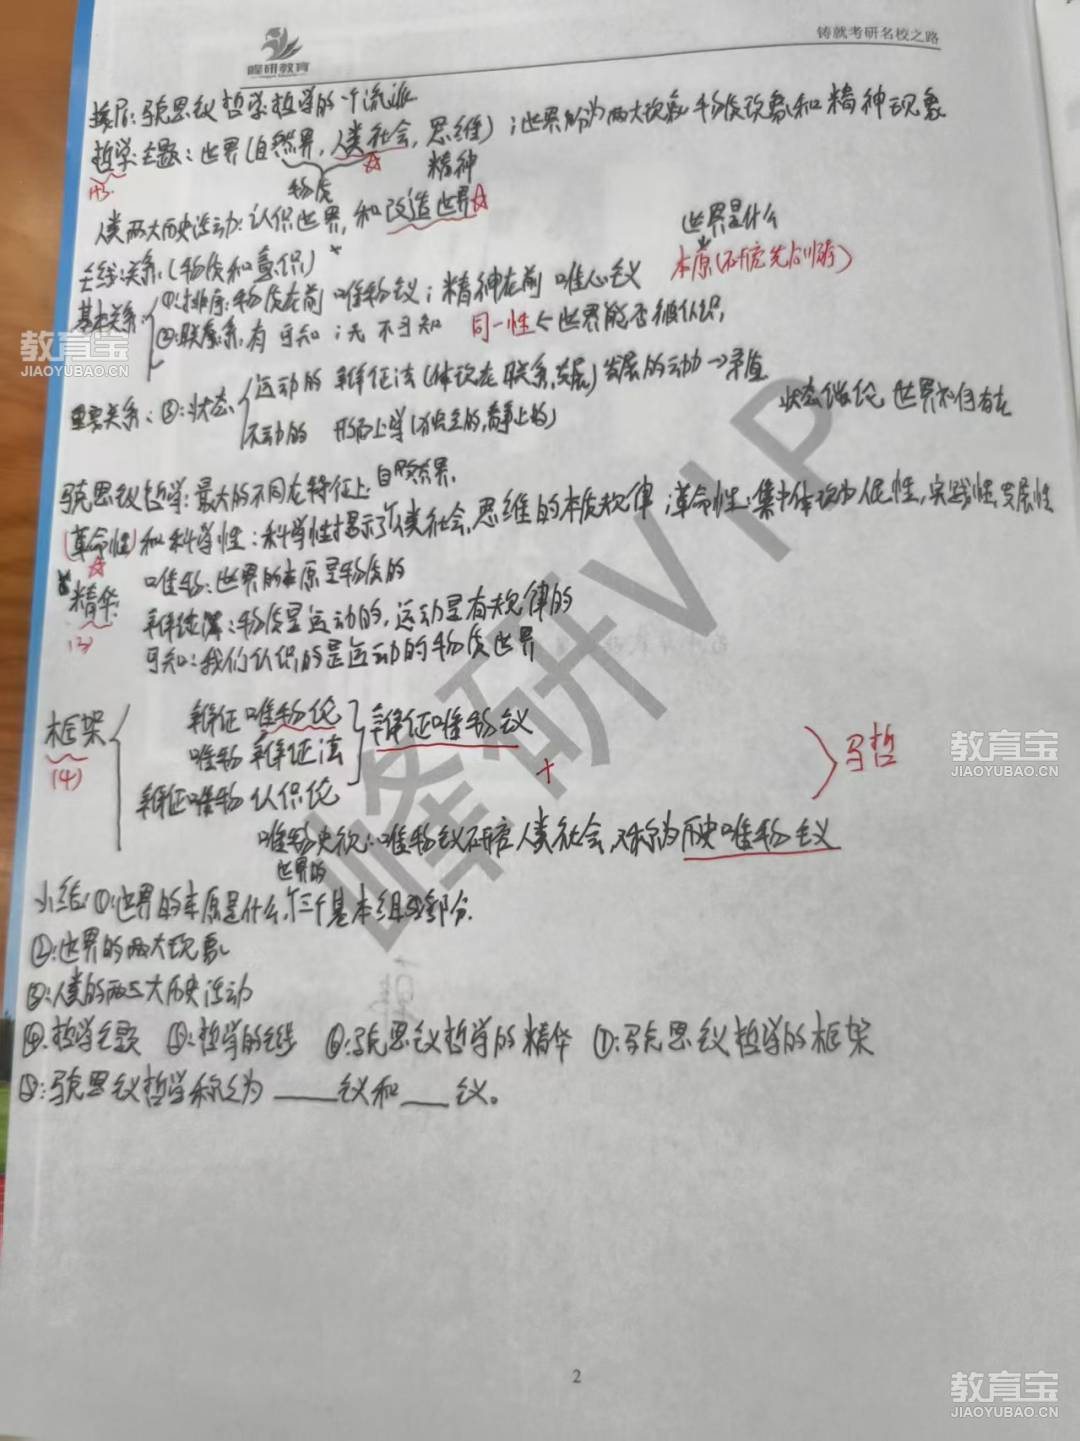 峰研教育
铸就考研名校之路
马克思主义哲学:哲学的一个流派
哲学主题:世界(自然界,人类社会,思维);世界分为两大现象 物质现象和精神现象
物质
精神
人类两大历史活动:认识世界,和改造世界
世界是什么
主线:关系(物质和意识)
本原
基本关系:
①:排序:物质在前 唯物主义;精神在前 唯心主义
②:联系:有 可知;无 不可知 同一性 世界能否被认识,
教育宝
JIAOYUBAO.CN
重要关系:③:状态
运动的 辩证法(体现在联系,发展)发展的动力→矛盾
不动的 形而上学
世界如何存在
马克思主义哲学:最大的不同在特征上:
自然界,
(革命性)和科学性:科学性揭示了人类社会,思维的本质规律;革命性:集中体现为人民性,实践性,发展性
精华:
唯物:世界的本原是物质的
辩证:物质是运动的,运动是有规律的
可知:我们认识的是运动的物质世界
框架
(4)
辩证唯物论
唯物辩证法
辩证唯物认识论
辩证唯物主义
+
马哲
唯物史观:唯物主义研究人类社会,又称为历史唯物主义
世界的
小结:①:世界的本原是什么,三个基本组成部分.
②:世界的两大现象
③:人类的两大历史活动
④:哲学主题 ⑤:哲学的主线 ⑥:马克思主义哲学的精华 ⑦:马克思主义哲学的框架
⑧:马克思主义哲学称之为____主义和___主义。
峰研VIP
2
教育宝
JIAOYUBAO.CN
教育宝
JIAOYUBAO.CN